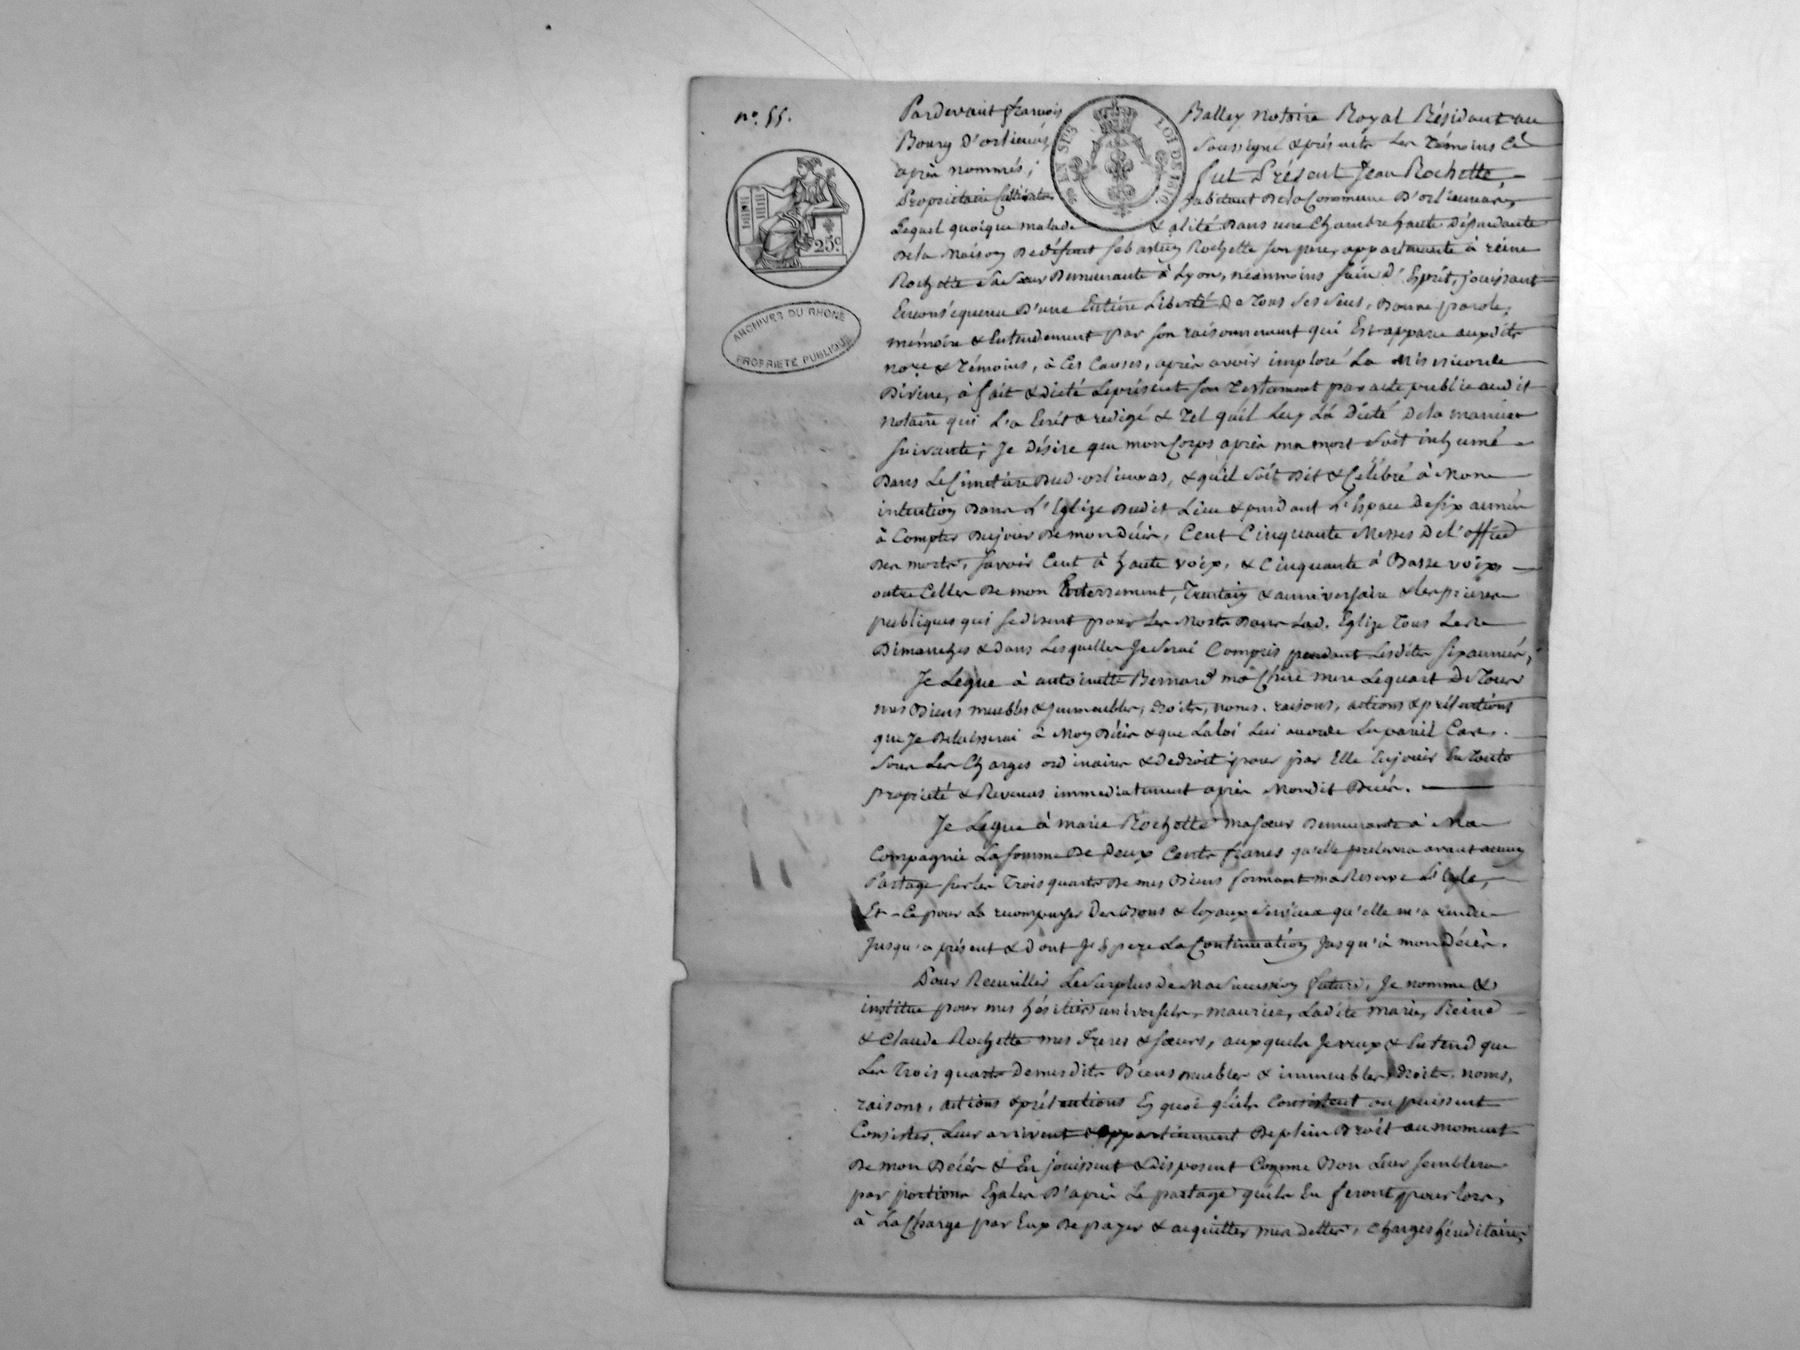 n.° 55.
Pardevant françois Balley Notaire Royal Résidant au
Bourg D'orlienas, soussigné & présents Les Témoins Cy
après nommés;
fut Présent Jean Rochette,
Propriétaire Cultivateur habitant de la Commune D'orlienas,
Lequel quoique malade & alité Dans une Chambre haute Dépendante
De la Maison De défunt sébastien Rochette son pere, appartenante à reine
Rochette Sa Sœur Demeurante à Lyon, néanmoins sain d'Esprit, jouissant
En conséquence D'une Entière Liberté De Tous Ses Sens, Bonne parole,
mémoire & Entendement par son raisonnement qui Est apparu auxdits
no.re & Témoins, à Ces Causes, après avoir imploré La Miséricorde
Divine, à fait & dicté Le présent son Testament par acte public audit
Notaire qui L'a Ecrit & rédigé & Tel qu'il Luy L'a Dicté De la manière
suivante; Je Désire que mon Corps après ma mort soit inhumé
Dans Le Cimetière Dud. orlienas, & qu'il soit Dit & Célébré à Mon
intention Dans L'Eglize Dudit Lieu & pendant L'Espace De six années
à Compter Du jour De mon Décès, Cent Cinquante Messes De l'office
Des morts, savoir Cent à haute voix, & Cinquante à Basse voix,
outre Celles De mon Enterrement, Trentain & anniversaire & les prières
publiques qui se disent pour Les Morts Dans Lad. Eglize Tous Les
Dimanches & Dans Lesquelles Je Serai Compris pendant Lesdites six années,
Je Lègue à antoinette Bernard ma Chère mere Le quart De Tous
mes Biens meubles & immeubles, droits, noms, raisons, actions & prétentions
que Je Delaisserai à Mon Décès & que La loi Lui accorde En pareil Cas,
sous Les Charges ordinaires & De droit pour par Elle En jouir En Toute
propriété & Revenus immédiatement après Mondit Décès.
Je Legue à marie Rochette ma sœur Demeurante à Ma
Compagnie La somme De Deux Cents francs qu'elle prélevra avant aucun
Partage sur Les Trois quarts De mes Biens formant ma Réserve Légale,
Et Ce pour La récompenser Des Bons & loyaux services qu'elle m'a rendu
Jusqu'à présent & Dont J'Espere La Continuation Jusqu'à mon Décès.
Pour Recueillir Le Surplus De Ma Succession future, Je nomme &
institue pour mes héritiers universels, maurice, Ladite marie, Reine
& Claude Rochette mes Freres & sœurs, auxquels Je veux & Entend que
Les Trois quarts De mesdits Biens meubles & immeubles, droits, noms,
raisons, actions & prétentions En quoi qu'ils Consistent ou puissent
Consister, Leur arrivent & appartiennent De plein Droit au moment
De mon Décès & En jouissent & disposent Comme Bon Leur semblera
par portions Egales D'après Le partage qu'ils En feront pour lors,
à La Charge par Eux De payer & acquitter mes dettes, charges héréditaires,
25c.
ARCHIVES DU RHONE
PROPRIÉTÉ PUBLIQUE
LOI DE 1816